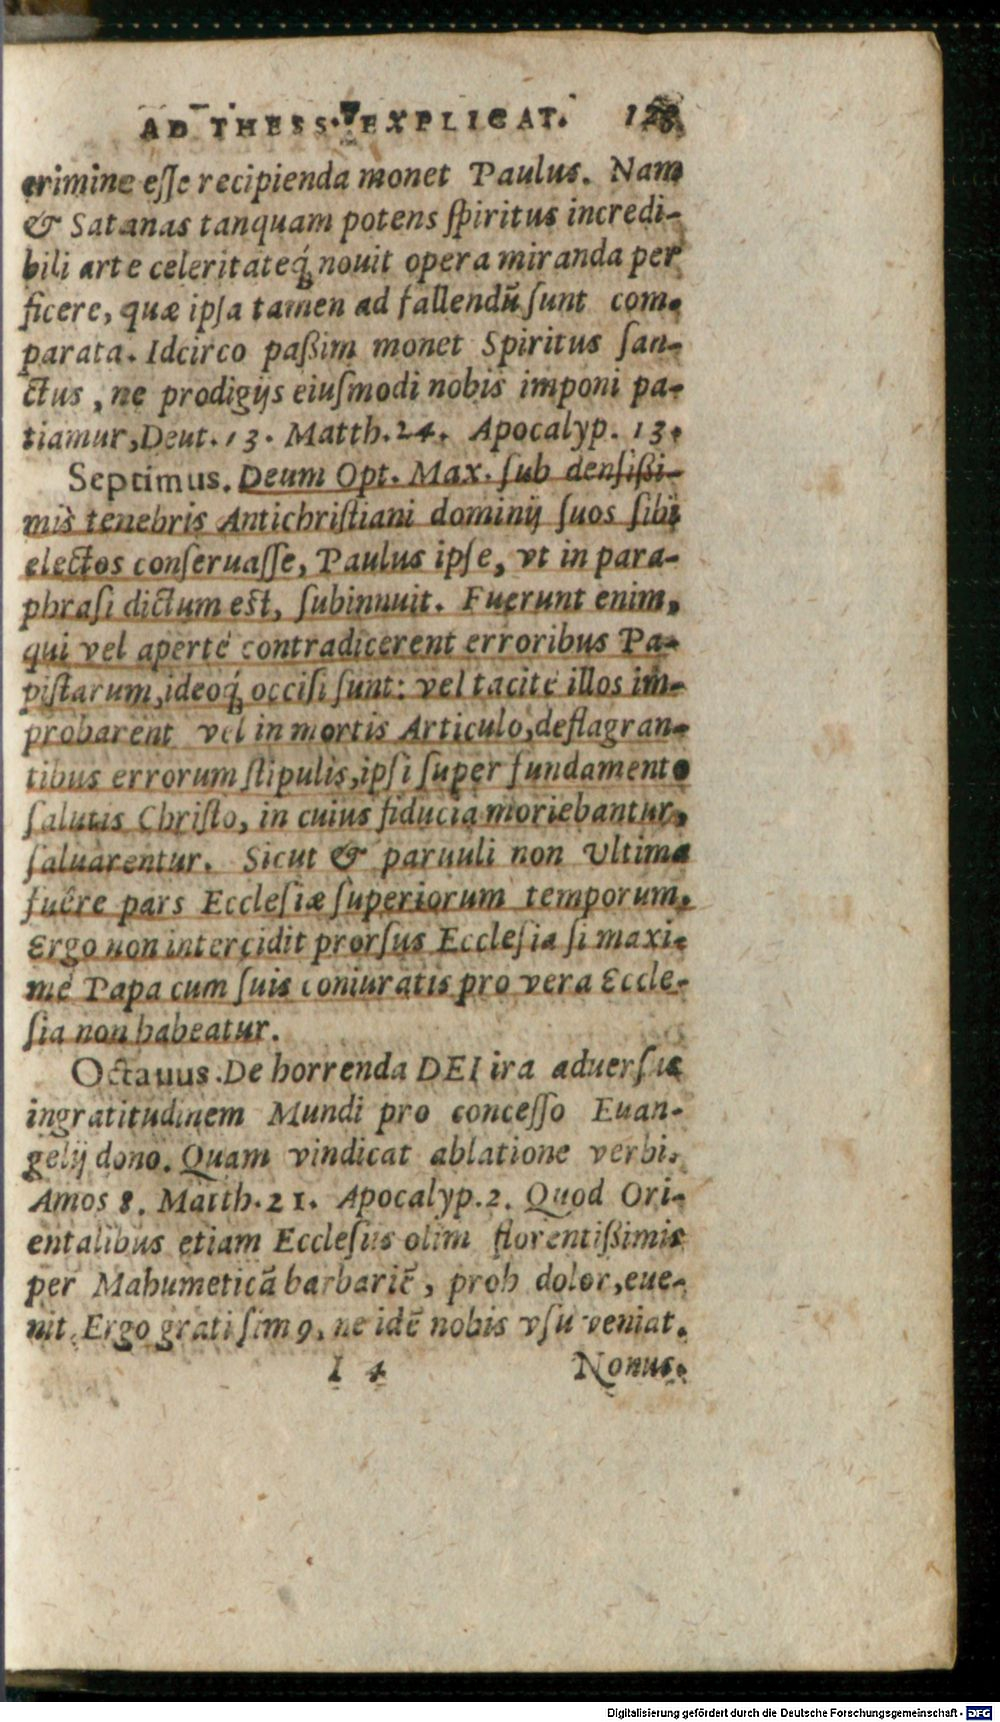 AD THESS. EXPLICAT.
crimine eſſe recipienda monet Paulus. Nam
& Satanas tanquam potens ſpiritus incredi-
bili arte celeritateq́; nouit opera miranda per
ficere, quæ ipſa tamen ad fallendũ ſunt com-
parata. Idcirco paßim monet Spiritus ſan-
ctus, ne prodigijs eiuſmodi nobis imponi pa-
tiamur, Deut. 13. Matth. 24. Apocalyp. 13.
Septimus. Deum Opt. Max. ſub denſißi-
mis tenebris Antichriſtiani dominij ſuos ſibi
electos conſeruaſſe, Paulus ipſe, vt in para-
phraſi dictum eſt, ſubinnuit. Fuerunt enim,
qui vel aperté contradicerent erroribus Pa-
piſtarum, ideoq́; occiſi ſunt: vel tacité illos im-
probarent vel in mortis Articulo, deflagran-
tibus errorum ſtipulis, ipſi ſuper fundamento
ſalutis Chriſto, in cuius fiducia moriebantur,
ſaluarentur. Sicut & paruuli non Vltima
fuêre pars Eccleſiæ ſuperiorum temporum.
Ergo non intercidit prorſus Eccleſia ſi maxi-
mé Papa cum ſuis coniuratis pro vera Eccle-
ſia non habeatur.
Octauus. De horrenda DEI ira aduerſus
ingratitudinem Mundi pro conceſſo Euan-
gelij dono. Quam vindicat ablatione verbi.
Amos 8. Matth. 21. Apocalyp. 2. Quod Ori-
entalibus etiam Eccleſiis olim florentißimis
per Mahumeticã barbariẽ, proh dolor, eue-
nit. Ergo grati ſimꝰ, ne idẽ nobis vſu veniat.
I 4 Nonus.
Digitalisierung gefördert durch die Deutsche Forschungsgemeinschaft - DFG